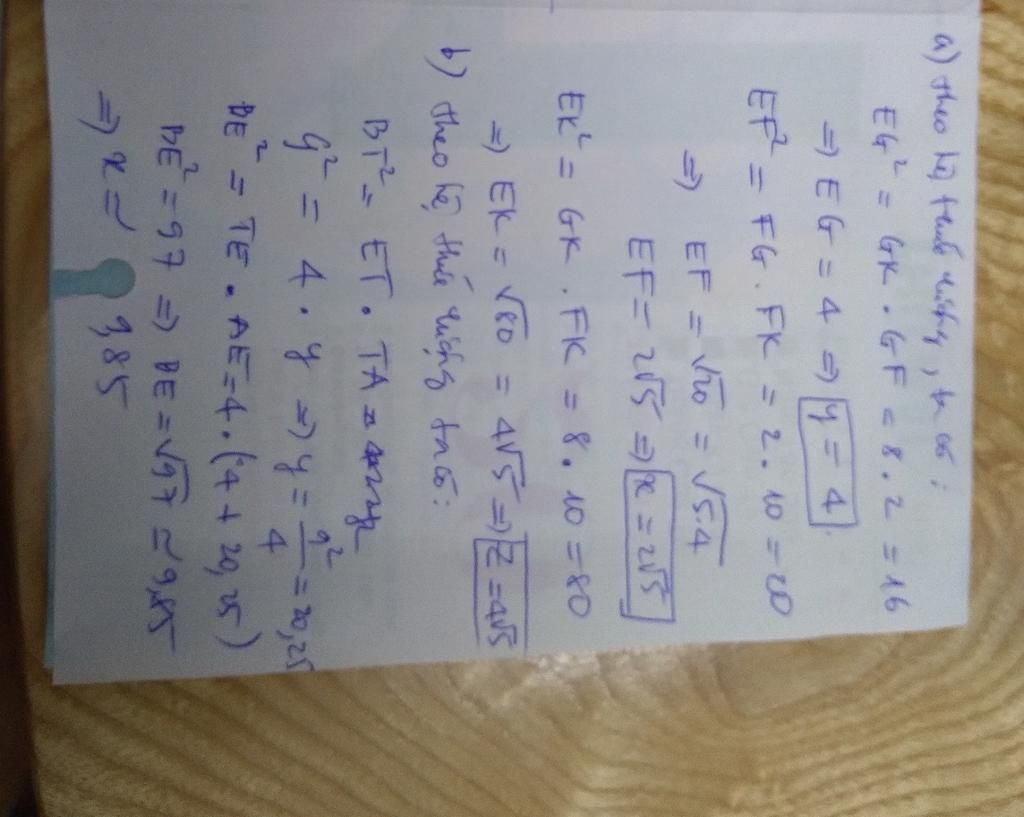 a) theo hệ thức lượng, ta có :
EG² = GK . GF = 8 . 2 = 16
⇒ EG = 4 ⇒ y = 4
EF² = FG . FK = 2 . 10 = 20
⇒ EF = √20 = √5.4
EF = 2√5 ⇒ x = 2√5
EK² = GK . FK = 8 . 10 = 80
⇒ EK = √80 = 4√5 ⇒ Z = 4√5
b) theo hệ thức lượng ta có :
BT² = ET . TA =
9² = 4 . y ⇒ y = 9²/4 = 20,25
BE² = TE . AE = 4 . (4 + 20,25)
BE² = 97 ⇒ BE = √97 ≃ 9,85
⇒ x ≃ 9,85